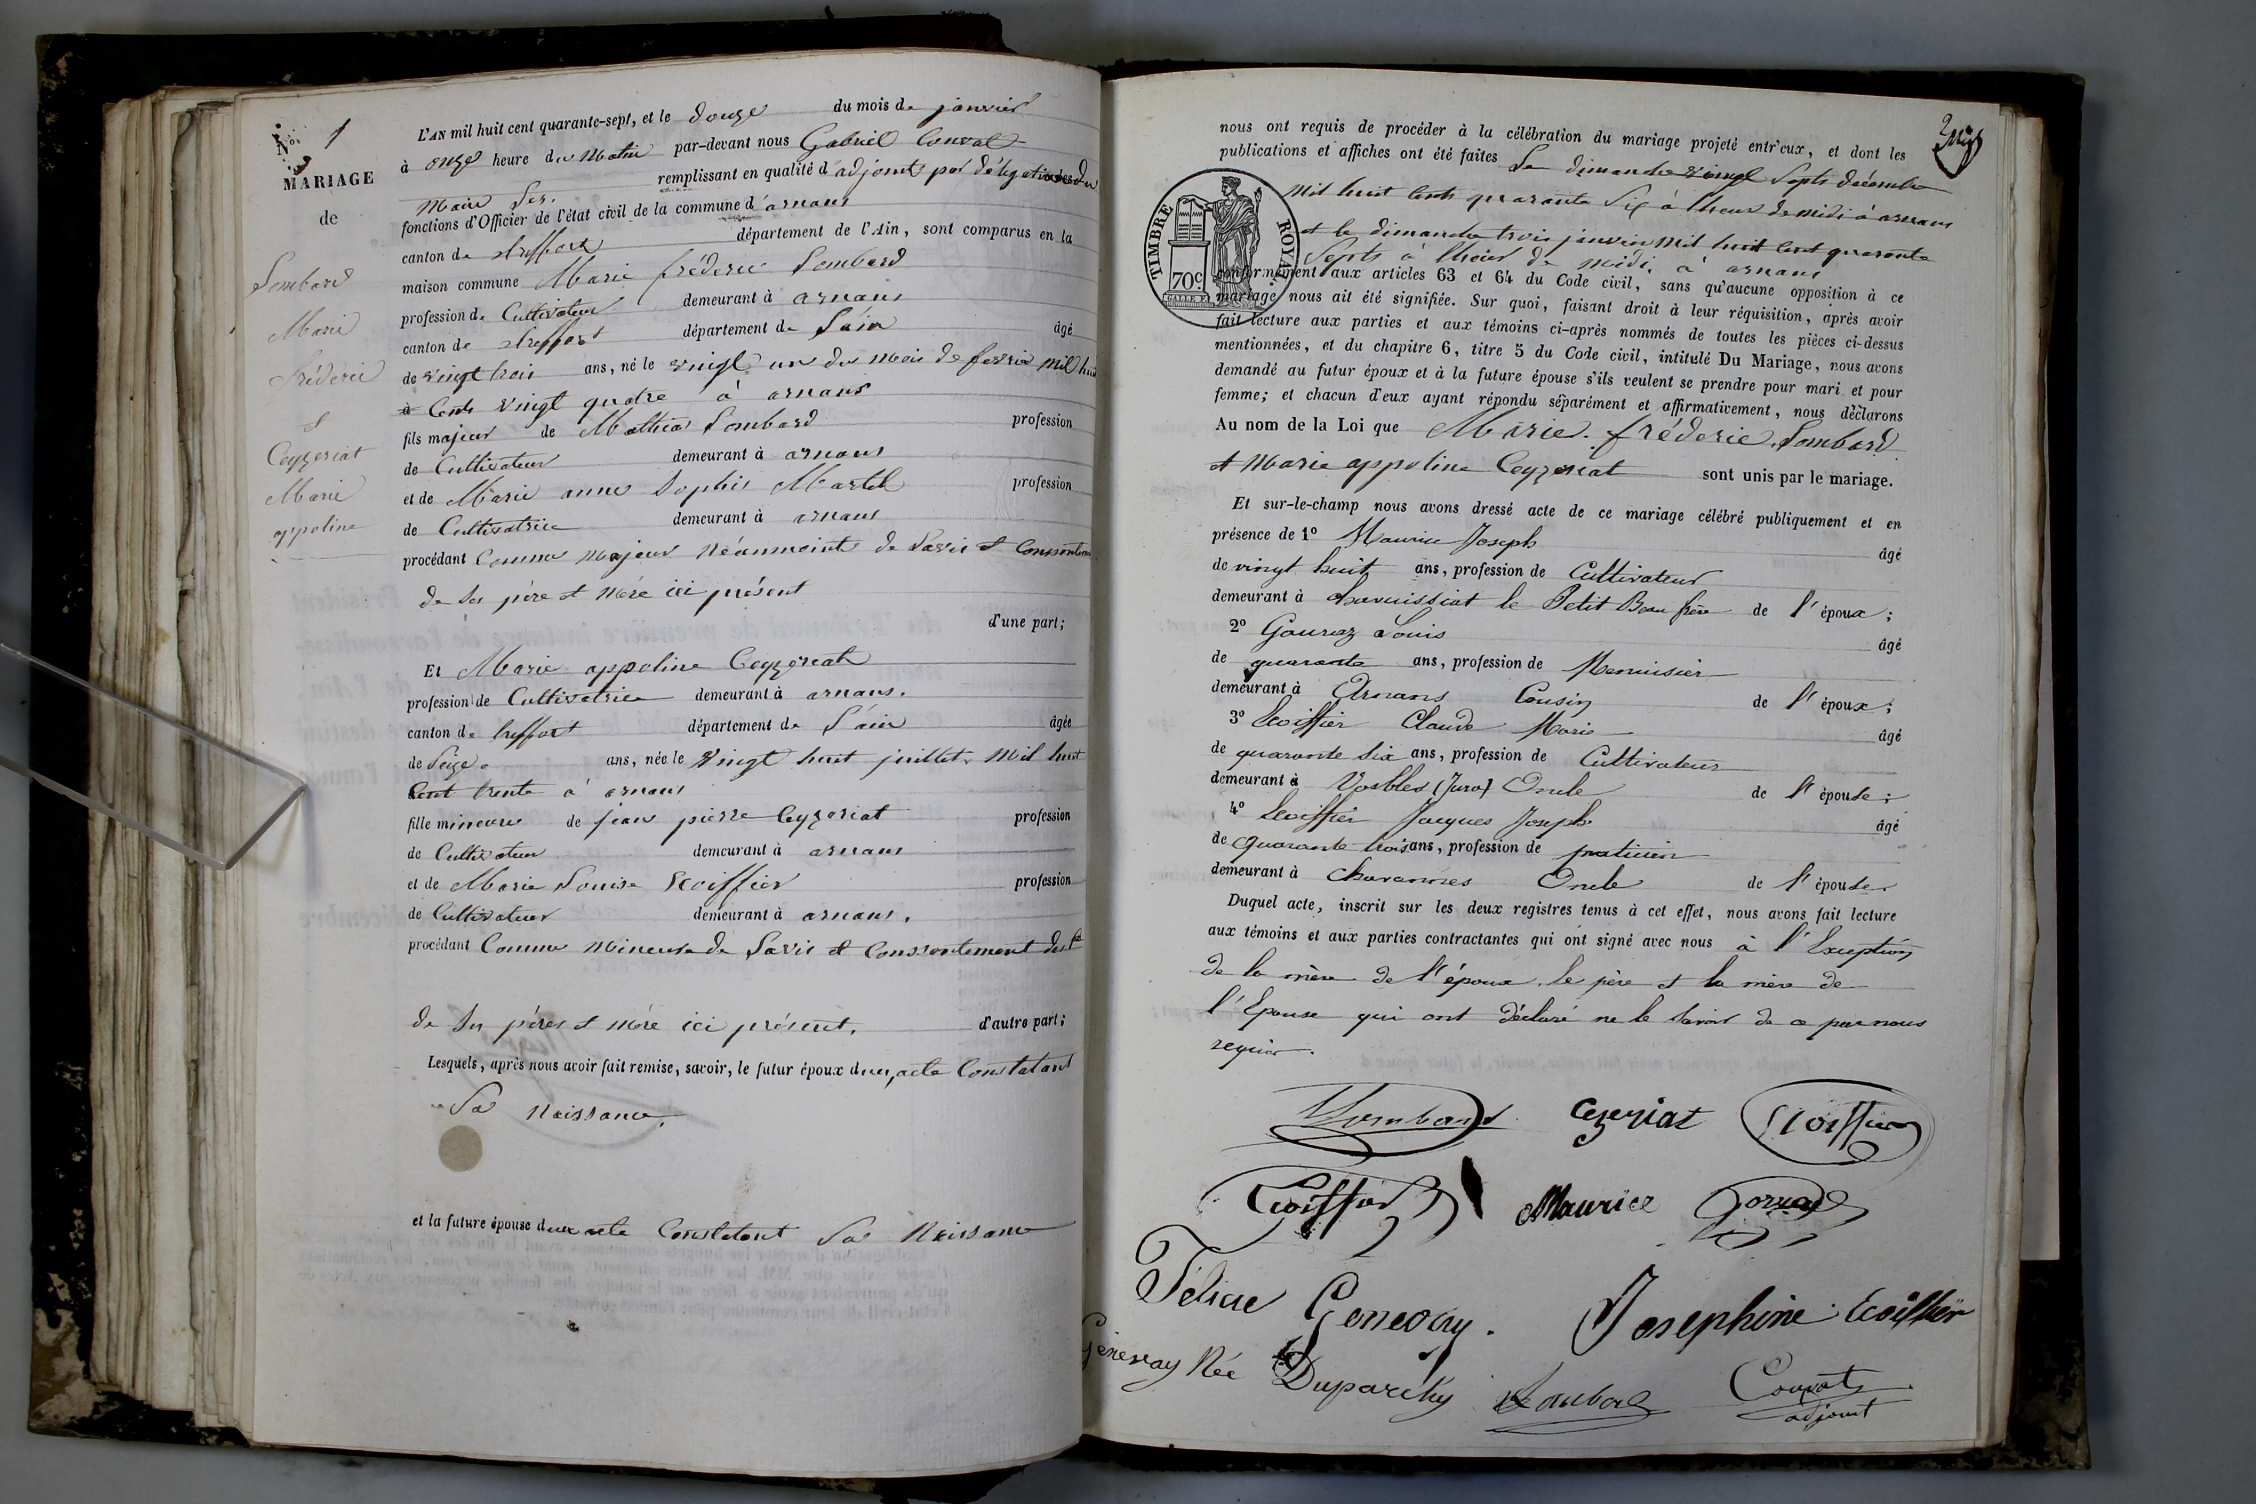 N° 1
MARIAGE
de
Lombard
Marie
Fréderic
et
Ceyzeriat
Marie
appoline
L'AN mil huit cent quarante-sept, et le douze du mois de janvier
à onze heure du Matin par-devant nous Gabriel Convat
remplissant en qualité d'adjoint par délégation du
Maire les
fonctions d'Officier de l'état civil de la commune d'arnans
canton de treffort département de l'Ain, sont comparus en la
maison commune Marie fréderic Lombard
profession de Cultivateur demeurant à arnans
canton de treffort département de L'ain âgé
de vingt trois ans, né le vingt un du mois de fevrier mil huit
Cents vingt quatre à arnans
fils majeur de Mathieu Lombard profession
de Cultivateur demeurant à arnans
et de Marie anne Sophie Martel profession
de Cultivatrice demeurant à arnans
procédant Comme Majeur Néanmoint de Lavis et Conssontement
de ses père et mère ici présent
d'une part;
Et Marie appoline Ceyzeriat
profession de Cultivatrice demeurant à arnans.
canton de treffort département de L'ain âgée
de Seize ans, née le vingt huit juillet mil huit
Cent trente à arnans
fille mineure de jean pierre Ceyzeriat profession
de Cultivateur demeurant à arnans
et de Marie Louise Ecoiffier profession
de Cultivateur demeurant à arnans.
procédant Comme Mineure de Lavis et Conssontement
de ses pères et mère ici présent. d'autre part;
Lesquels, après nous avoir fait remise, savoir, le futur époux d'un acte Constatant
Sa Naissance.
et la future épouse d'un acte Constatant Sa Naissance
2
nous ont requis de procéder à la célébration du mariage projeté entr'eux, et dont les
publications et affiches ont été faites Le dimanche vingt Septs décembre
mil huit Cents quarante Six à l'heure de midi à arnans
et le dimanche trois janvier mil huit Cent quarante
Septs à l'heure de midi à arnans
TIMBRE ROYAL
70c
conformément aux articles 63 et 64 du Code civil, sans qu'aucune opposition à ce
mariage nous ait été signifiée. Sur quoi, faisant droit à leur réquisition, après avoir
fait lecture aux parties et aux témoins ci-après nommés de toutes les pièces ci-dessus
mentionnées, et du chapitre 6, titre 5 du Code civil, intitulé Du Mariage, nous avons
demandé au futur époux et à la future épouse s'ils veulent se prendre pour mari et pour
femme; et chacun d'eux ayant répondu séparément et affirmativement, nous déclarons
Au nom de la Loi que Marie fréderic Lombard
et Marie appoline Ceyzeriat sont unis par le mariage.
Et sur-le-champ nous avons dressé acte de ce mariage célébré publiquement et en
présence de 1° Maurice Joseph âgé
de vingt huit ans, profession de Cultivateur
demeurant à chavuissiat le Petit Beau frère de l'époux;
2° Gouvaz Louis âgé
de quarante ans, profession de Menuisier
demeurant à Arnans Cousin de l'époux;
3° Ecoiffier Claude Marie âgé
de quarante six ans, profession de Cultivateur
demeurant à Vosbles (Jura) Oncle de l'épouse;
4° Ecoiffier Jacques Joseph âgé
de quarante trois ans, profession de praticien
demeurant à chavannes Oncle de l'épouse
Duquel acte, inscrit sur les deux registres tenus à cet effet, nous avons fait lecture
aux témoins et aux parties contractantes qui ont signé avec nous à l'Exception
de la mère de l'époux, le père et la mère de
l'Epouse qui ont déclaré ne le savoir de ce par nous
requis.
Lombard Ceyzeriat Ecoiffier
Ecoiffier Maurice Gouvaz
Félicie Genevay. Josephine Ecoiffier
Genevay Née Duparchy Lombard Convat
adjoint